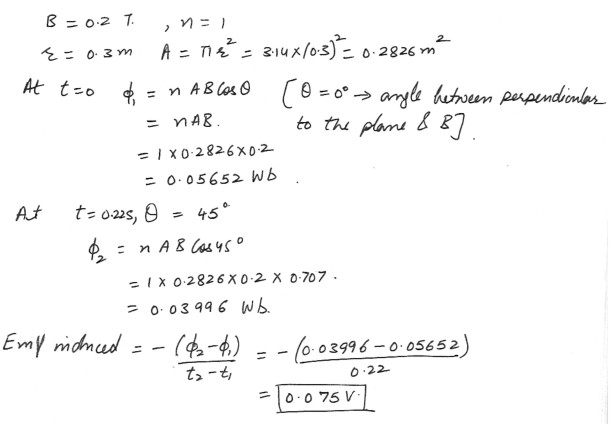 B = 0.2 T. , n = 1
r = 0.3 m A = πr² = 3.14 x (0.3)² = 0.2826 m²
At t=0 ϕ₁ = n A B Cos θ [θ = 0° → angle between perpendicular
= nAB. to the plane & B].
= 1 x 0.2826 x 0.2
= 0.05652 Wb.
At t=0.22s, θ = 45°
ϕ₂ = n A B Cos 45°
= 1 x 0.2826 x 0.2 x 0.707.
= 0.03996 Wb.
Emf induced = - (ϕ₂-ϕ₁) / t₂-t₁ = - (0.03996 - 0.05652) / 0.22
= 0.075 V.